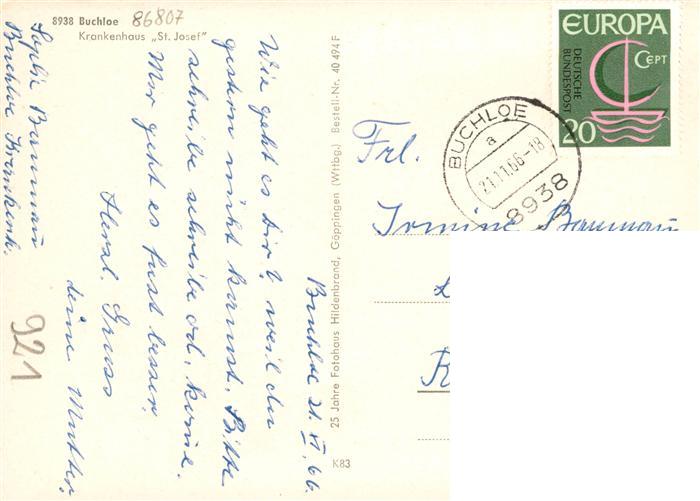 8938 Buchloe 86807
Krankenhaus „St. Josef"
Buchloe 21. XI. 66.
Wie geht es dir? weil du
gestern nicht kamst. Bitte
schreibe schreibe od. komme.
Mir geht es fast besser,
Herzl. Gruss
deine Mutter.
Sophie Baumau
Buchloe Krankenh.
921
25 Jahre Fotohaus Hildenbrand, Göppingen (Wttbg.) Bestell-Nr. 40 494 F
K83
EUROPA
CEPT
DEUTSCHE
BUNDESPOST
20
BUCHLOE
a
21.11.66-18
8938
Frl.
Baumau